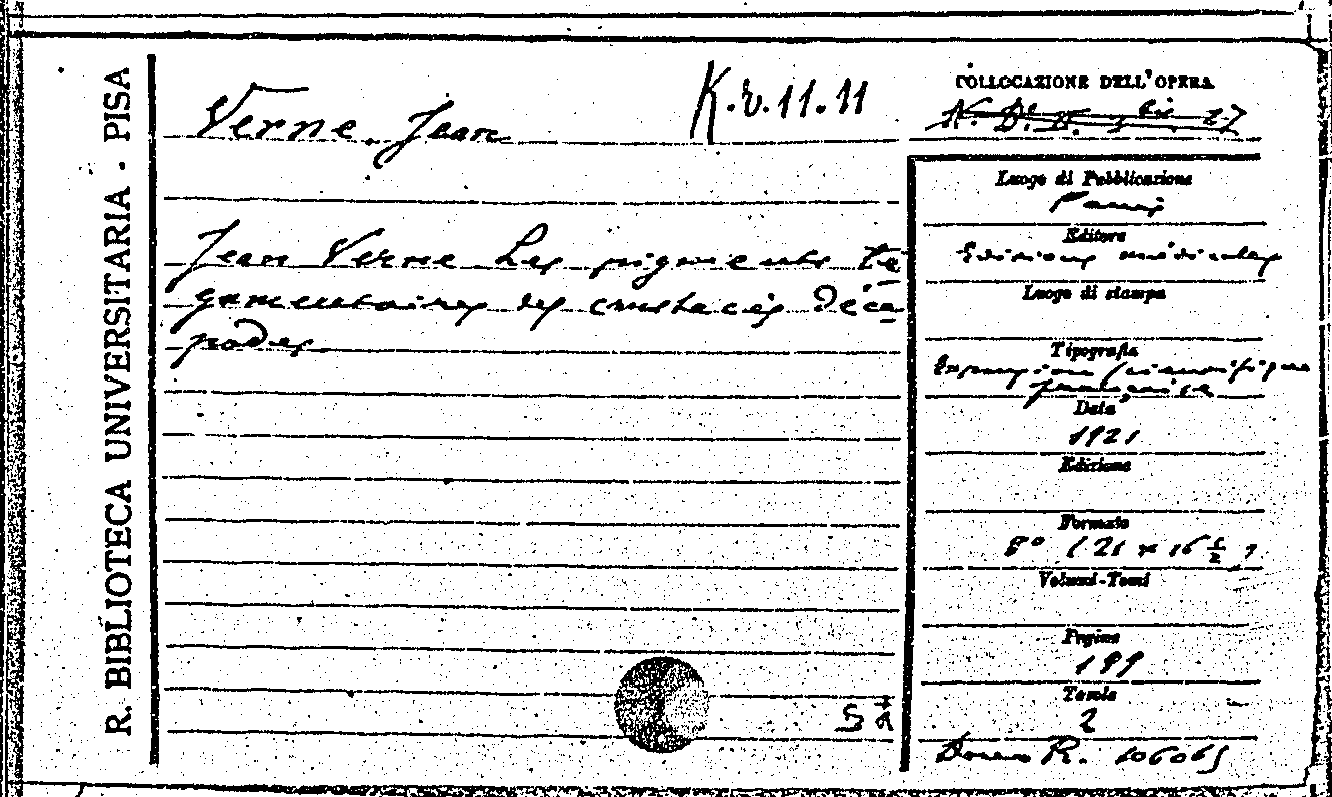 R. BIBLIOTECA UNIVERSITARIA · PISA
Verne Jean
K.v.11.11
COLLOCAZIONE DELL'OPERA
Jean Verne Les pigments té
gumentaires des crustacés déca
podes.
Luogo di Pubblicazione
Paris
Editore
Editions médicales
Luogo di stampa
Tipografia
Expansion scientifique
française
Data
1921
Edizione
Formato
8°
Volumi-Tomi
Pagine
Tavole
2
R. 106065